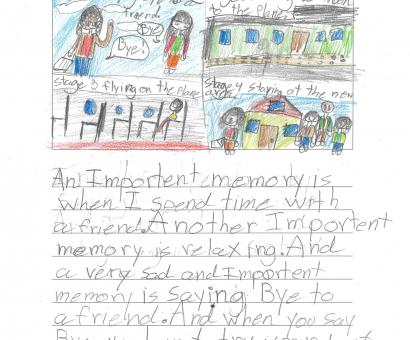 friend
Bye
Bye!
to the Plane
stage 3 flying on the Plane
stage 4 staying at the new
An Importent memory is
when I spend time with
a friend. Another Importent
memory is relaxfng. And
a very sad and Importent
memory is saying Bye to
a friend. And when you say